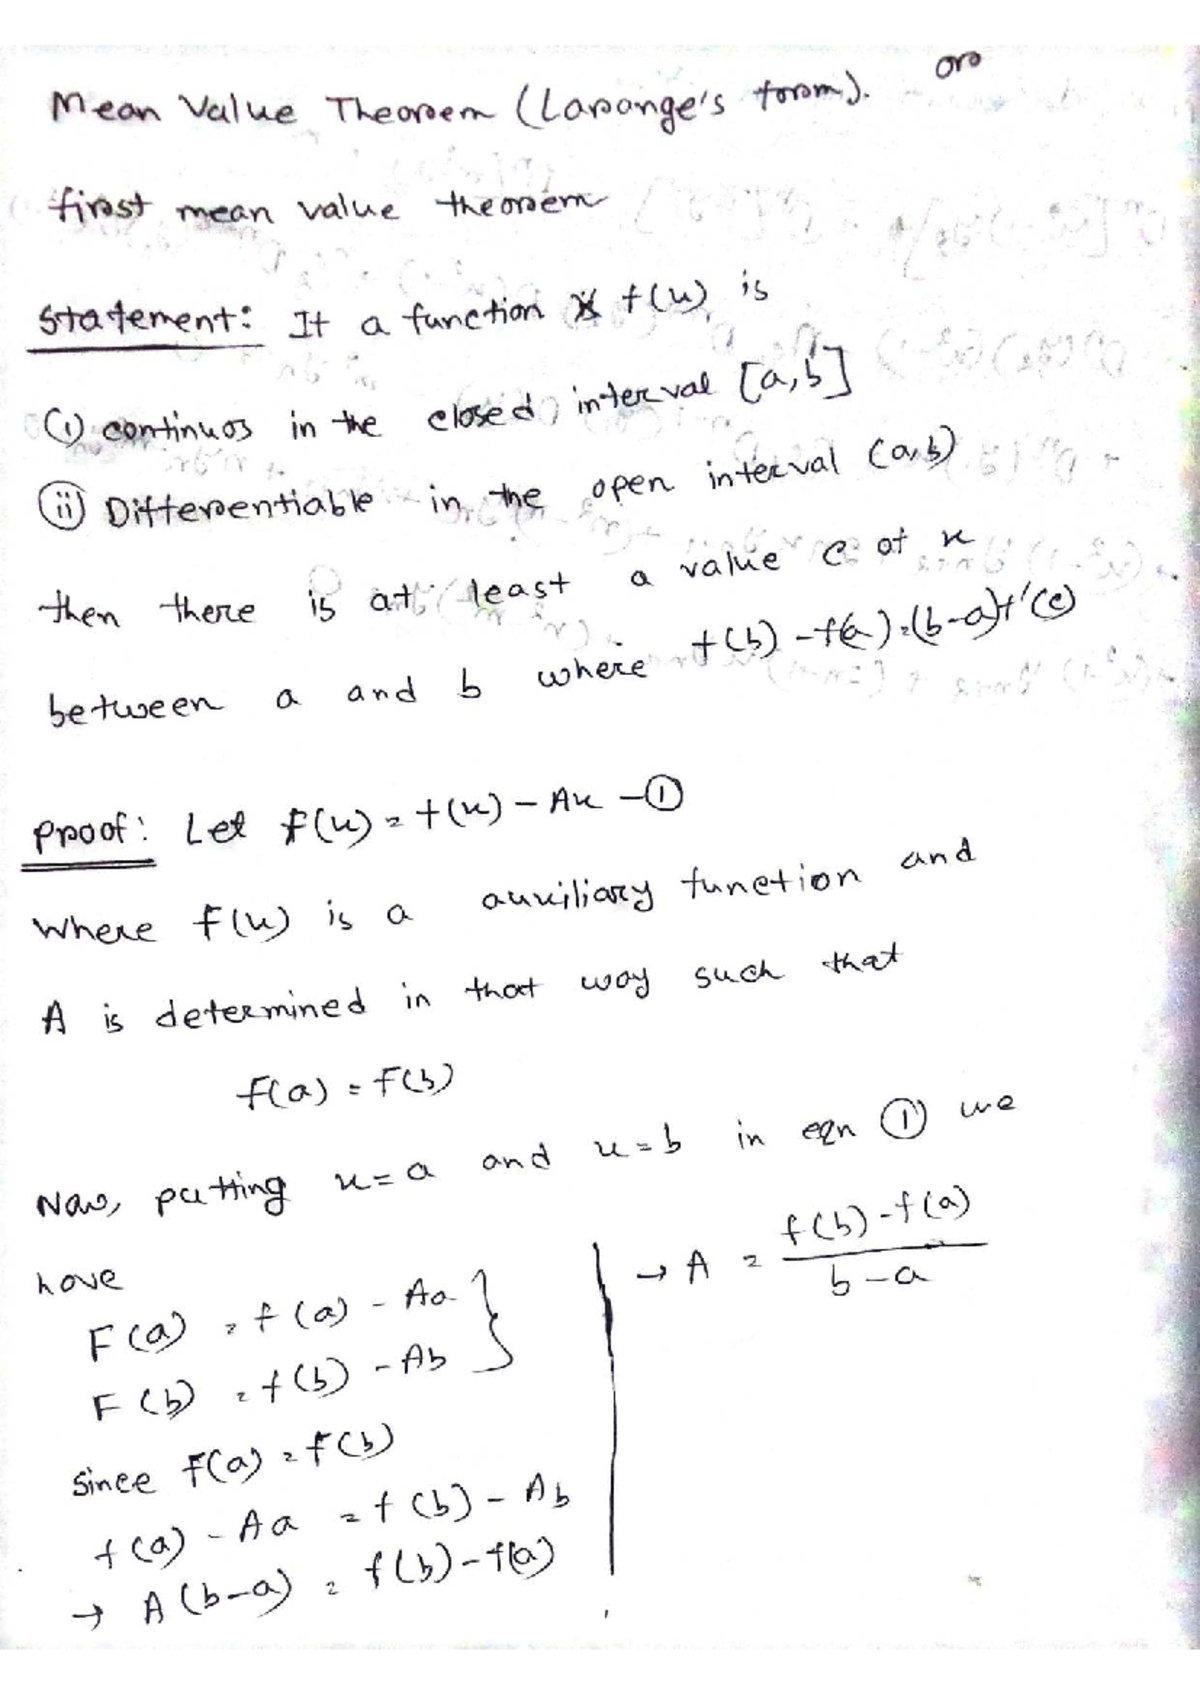 Mean Value Theorem (Larange's form). or
first mean value theorem
Statement: If a function f(x) is
(i) continuos in the closed interval [a,b]
(ii) Differentiable in the open interval (a,b)
then there is at least a value c of x
between a and b where f(b) - f(a) = (b-a)f'(c)
Proof: Let F(x) = f(x) - Ax - (1)
Where F(x) is a auxiliary function and
A is determined in that way such that
F(a) = F(b)
Now, putting x = a and x = b in eqn (1) we
have
F(a) = f(a) - Aa
F(b) = f(b) - Ab }
Since F(a) = F(b)
f(a) - Aa = f(b) - Ab
→ A(b-a) = f(b) - f(a)
→ A = \frac{f(b) - f(a)}{b-a}